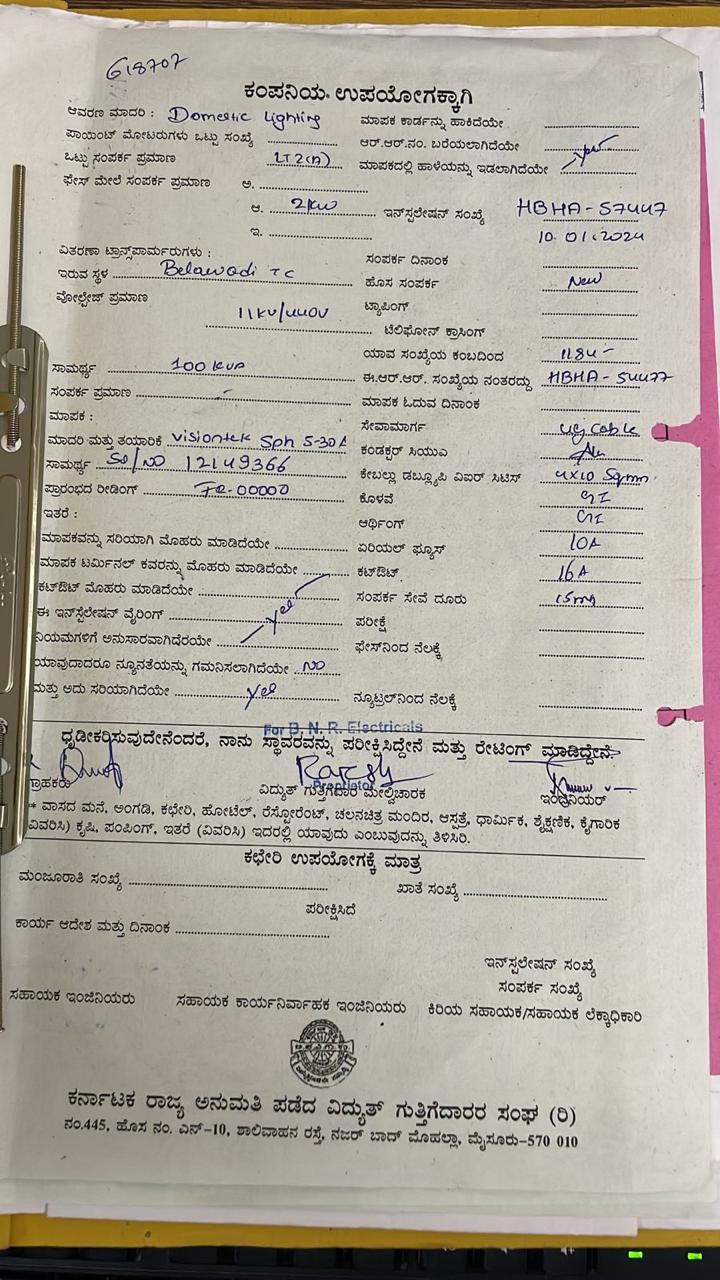 618707
ಕಂಪನಿಯ ಉಪಯೋಗಕ್ಕಾಗಿ
ಆವರಣ ಮಾದರಿ : Domestic Lighting ಮಾಪಕ ಕಾರ್ಡನ್ನು ಹಾಕಿದೆಯೇ
ಪಾಯಿಂಟ್ ಮೋಟರುಗಳು ಒಟ್ಟು ಸಂಖ್ಯೆ ಆರ್.ಆರ್.ನಂ. ಬರೆಯಲಾಗಿದೆಯೇ
ಒಟ್ಟು ಸಂಪರ್ಕ ಪ್ರಮಾಣ LT2(A) ಮಾಪಕದಲ್ಲಿ ಹಾಳೆಯನ್ನು ಇಡಲಾಗಿದೆಯೇ yes
ಫೇಸ್ ಮೇಲೆ ಸಂಪರ್ಕ ಪ್ರಮಾಣ ಅ.
ಆ. 2KW ಇನ್‌ಸ್ಟಲೇಷನ್ ಸಂಖ್ಯೆ HBHA-57447
ಇ. 10.01.2024
ವಿತರಣಾ ಟ್ರಾನ್ಸ್‌ಪಾರ್ಮರುಗಳು : ಸಂಪರ್ಕ ದಿನಾಂಕ
ಇರುವ ಸ್ಥಳ Belawadi TC ಹೊಸ ಸಂಪರ್ಕ New
ವೋಲ್ಟೇಜ್ ಪ್ರಮಾಣ 11KV/440V ಟ್ಯಾಪಿಂಗ್
ಟೆಲಿಫೋನ್ ಕ್ರಾಸಿಂಗ್
ಯಾವ ಸಂಖ್ಯೆಯ ಕಂಬದಿಂದ
ಸಾಮರ್ಥ್ಯ 100 KVA ಈ.ಆರ್.ಆರ್. ಸಂಖ್ಯೆಯ ನಂತರದ್ದು HBHA-54477
ಸಂಪರ್ಕ ಪ್ರಮಾಣ ಮಾಪಕ ಓದುವ ದಿನಾಂಕ
ಮಾಪಕ : ಸೇವಾಮಾರ್ಗ UG cable
ಮಾದರಿ ಮತ್ತು ತಯಾರಿಕೆ visiontek Sph 5-30A ಕಂಡಕ್ಟರ್ ಸಿಯುಎ Alu
ಸಾಮರ್ಥ್ಯ Sl/NO 12149366 ಕೇಬಲ್ಲು ಡಬ್ಲ್ಯೂಪಿ ವಿಐರ್ ಸಿಟಿಸ್ 4X10 Sqmm
ಪ್ರಾರಂಭದ ರೀಡಿಂಗ್ FR-00000 ಕೊಳವೆ GI
ಇತರೆ : ಅರ್ಥಿಂಗ್ GI
ಮಾಪಕವನ್ನು ಸರಿಯಾಗಿ ಮೊಹರು ಮಾಡಿದೆಯೇ ಏರಿಯಲ್ ಫ್ಯೂಸ್ 10A
ಮಾಪಕ ಟರ್ಮಿನಲ್ ಕವರನ್ನು ಮೊಹರು ಮಾಡಿದೆಯೇ ಕಟ್‌ಔಟ್ 16A
ಕಟ್‌ಔಟ್ ಮೊಹರು ಮಾಡಿದೆಯೇ ಸಂಪರ್ಕ ಸೇವೆ ದೂರು
ಈ ಇನ್‌ಸ್ಟೆಲೇಷನ್ ವೈರಿಂಗ್ yes ಪರೀಕ್ಷೆ
ನಿಯಮಗಳಿಗೆ ಅನುಸಾರವಾಗಿದೆಯೇ ಫೇಸ್‌ನಿಂದ ನೆಲಕ್ಕೆ
ಯಾವುದಾದರೂ ನ್ಯೂನತೆಯನ್ನು ಗಮನಿಸಲಾಗಿದೆಯೇ NO
ಮತ್ತು ಅದು ಸರಿಯಾಗಿದೆಯೇ yes ನ್ಯೂಟ್ರಲ್‌ನಿಂದ ನೆಲಕ್ಕೆ
For B. N. R. Electricals
ಧೃಡೀಕರಿಸುವುದೇನೆಂದರೆ, ನಾನು ಸ್ಥಾವರವನ್ನು ಪರೀಕ್ಷಿಸಿದ್ದೇನೆ ಮತ್ತು ರೇಟಿಂಗ್ ಮಾಡಿದ್ದೇನೆ.
Proprietor
ಗ್ರಾಹಕರು ವಿದ್ಯುತ್ ಗುತ್ತಿಗೆದಾರ ಮೇಲ್ವಿಚಾರಕ ಇಂಜಿನಿಯರ್
* ವಾಸದ ಮನೆ, ಅಂಗಡಿ, ಕಛೇರಿ, ಹೋಟೆಲ್, ರೆಸ್ಟೋರೆಂಟ್, ಚಲನಚಿತ್ರ ಮಂದಿರ, ಆಸ್ಪತ್ರೆ, ಧಾರ್ಮಿಕ, ಶೈಕ್ಷಣಿಕ, ಕೈಗಾರಿಕ
(ವಿವರಿಸಿ) ಕೃಷಿ, ಪಂಪಿಂಗ್, ಇತರೆ (ವಿವರಿಸಿ) ಇದರಲ್ಲಿ ಯಾವುದು ಎಂಬುವುದನ್ನು ತಿಳಿಸಿರಿ.
ಕಛೇರಿ ಉಪಯೋಗಕ್ಕೆ ಮಾತ್ರ
ಮಂಜೂರಾತಿ ಸಂಖ್ಯೆ ಖಾತೆ ಸಂಖ್ಯೆ
ಪರೀಕ್ಷಿಸಿದೆ
ಕಾರ್ಯ ಆದೇಶ ಮತ್ತು ದಿನಾಂಕ
ಇನ್‌ಸ್ಟಲೇಷನ್ ಸಂಖ್ಯೆ
ಸಂಪರ್ಕ ಸಂಖ್ಯೆ
ಸಹಾಯಕ ಇಂಜಿನಿಯರು ಸಹಾಯಕ ಕಾರ್ಯನಿರ್ವಾಹಕ ಇಂಜಿನಿಯರು ಕಿರಿಯ ಸಹಾಯಕ/ಸಹಾಯಕ ಲೆಕ್ಕಾಧಿಕಾರಿ
ಕರ್ನಾಟಕ ರಾಜ್ಯ ಅನುಮತಿ ಪಡೆದ ವಿದ್ಯುತ್ ಗುತ್ತಿಗೆದಾರರ ಸಂಘ (ರಿ)
ನಂ.445, ಹೊಸ ನಂ. ಎನ್-10, ಶಾಲಿವಾಹನ ರಸ್ತೆ, ನಜರ್ ಬಾದ್ ಮೊಹಲ್ಲಾ, ಮೈಸೂರು-570 010